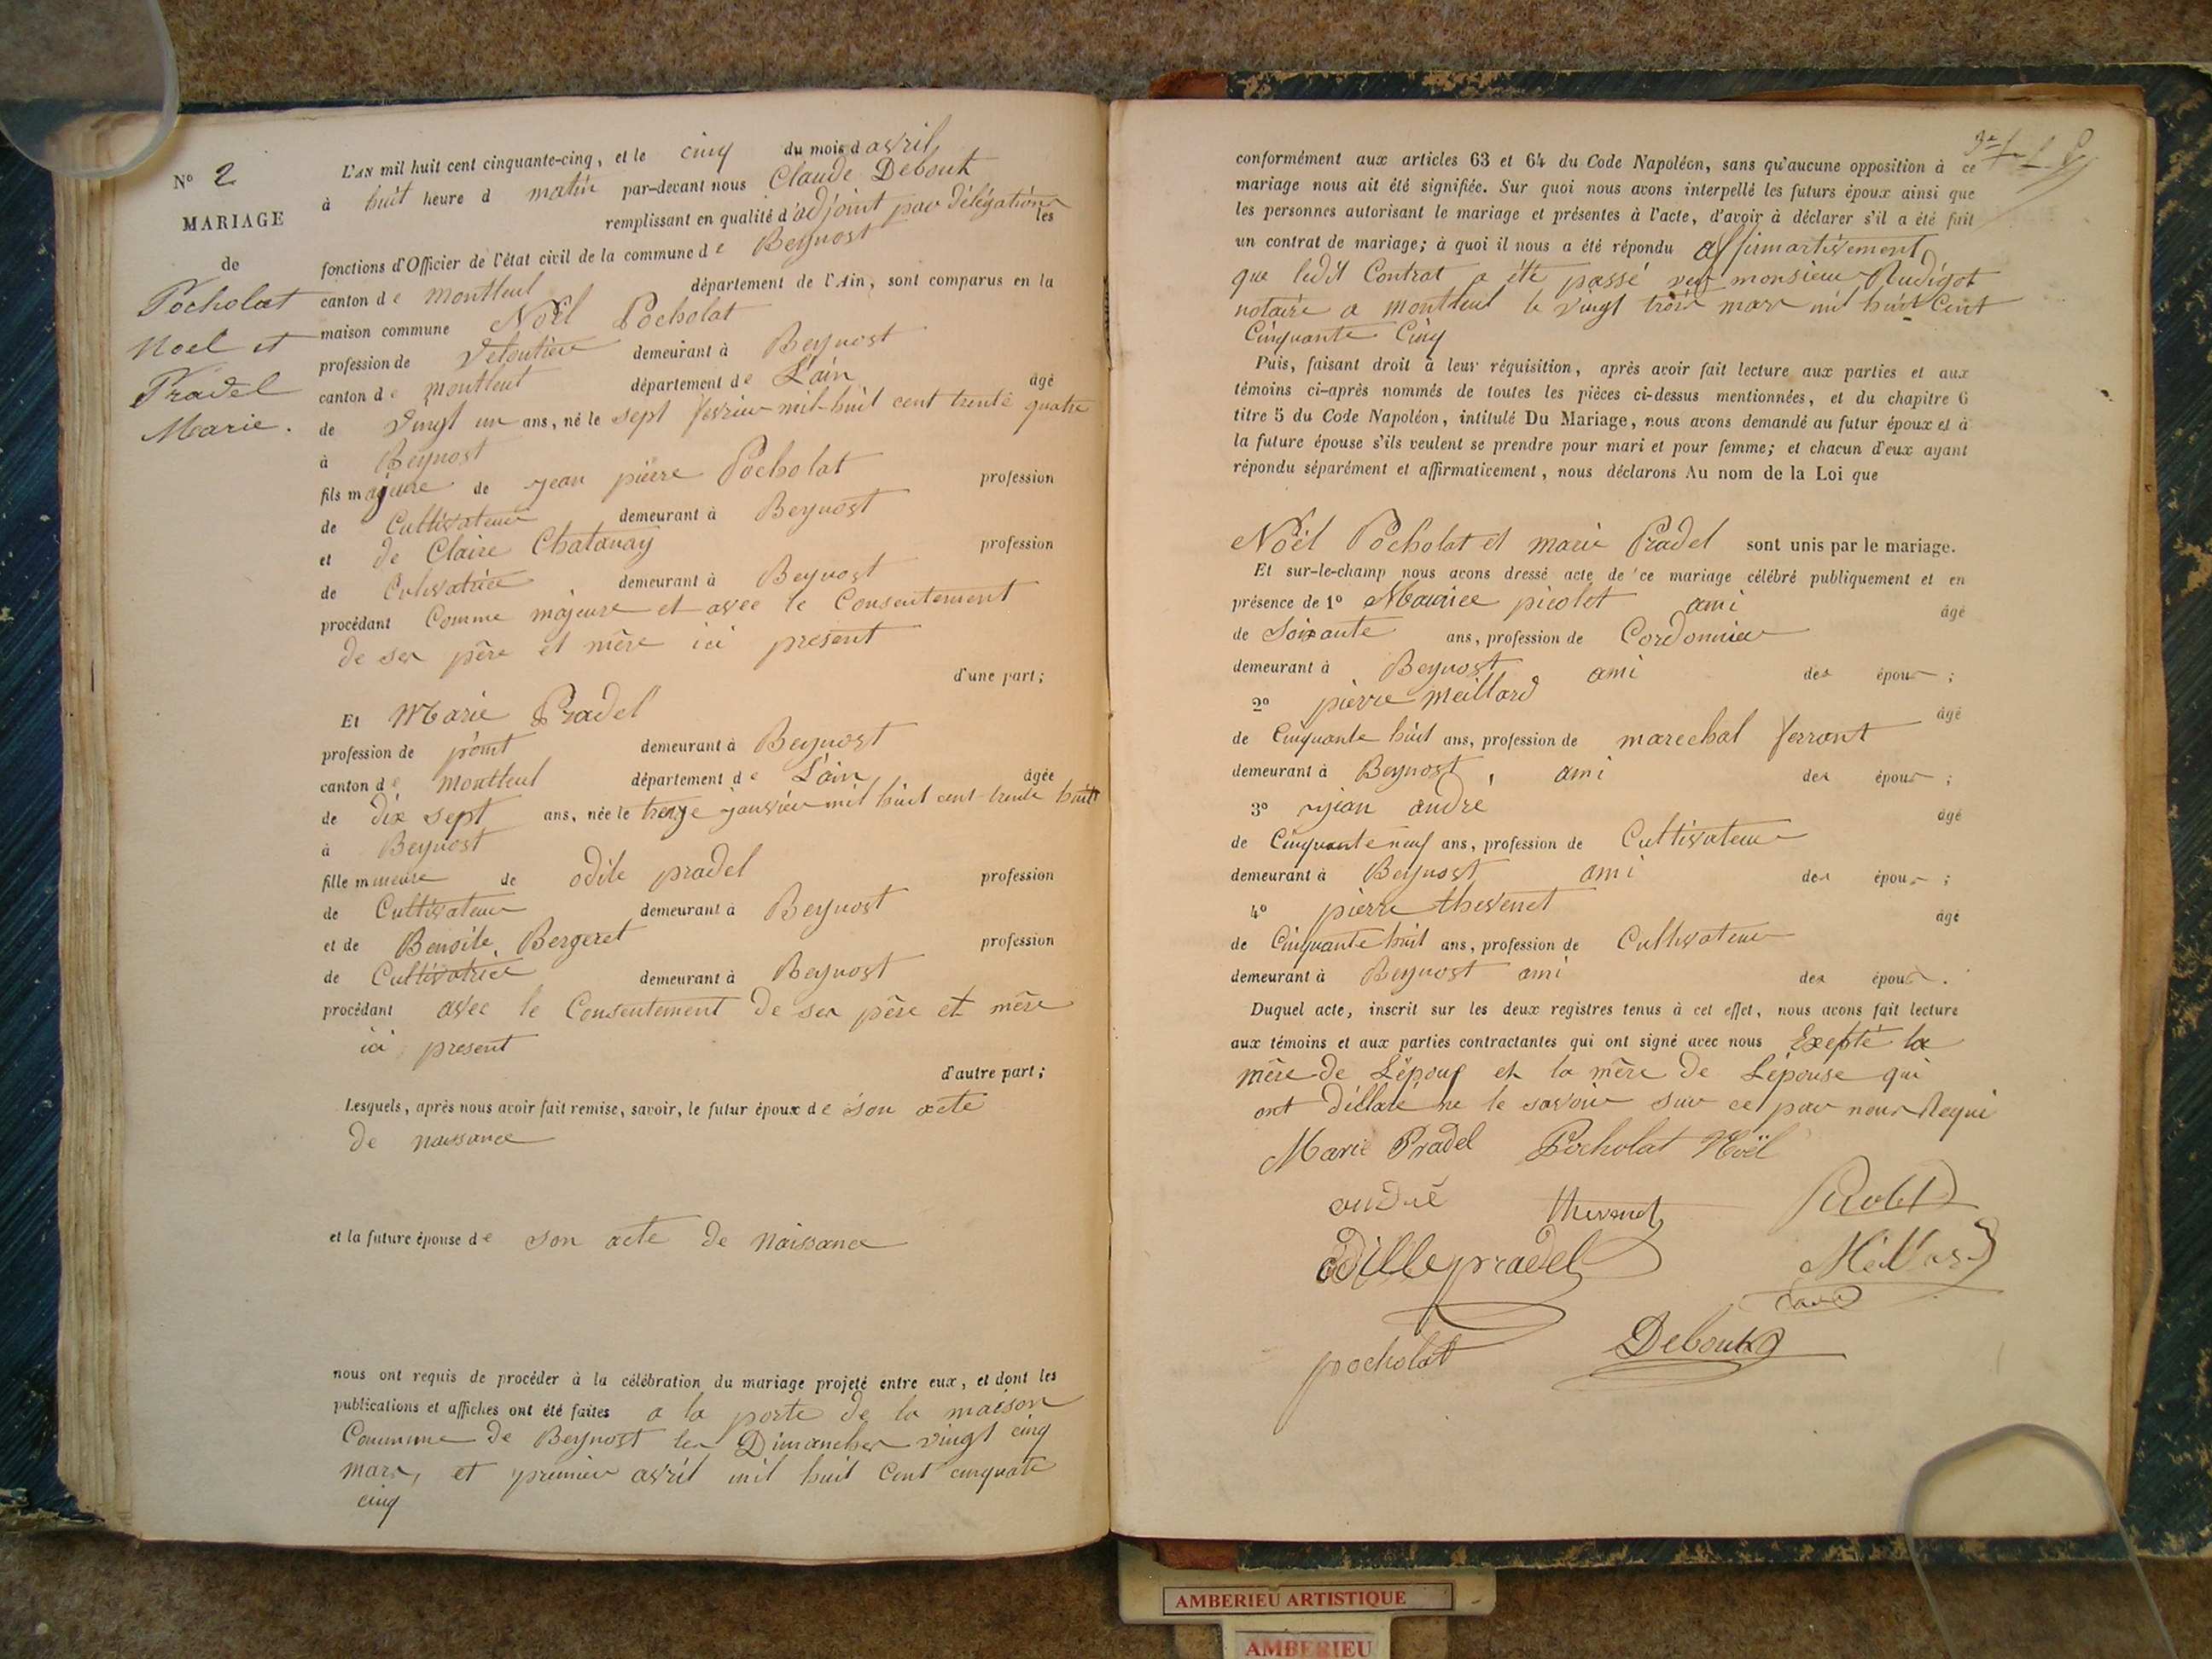 N° 2
MARIAGE
de
Pocholat
Noel et
Pradel
Marie.
L'AN mil huit cent cinquante-cinq, et le cinq du mois d avril
à huit heure d matin par-devant nous Claude Debout
remplissant en qualité d'adjoint par délégation les
fonctions d'Officier de l'état civil de la commune de Beynost
canton de montluel département de l'Ain, sont comparus en la
maison commune Noël Pocholat
profession de demeurant à Beynost
canton de montluel département de L'ain âgé
de vingt un ans, né le sept fevrier mil huit cent trente quatre
à Beynost
fils majeure de jean pierre Pocholat profession
de Cultivateur demeurant à Beynost
et de Claire Chatanay profession
de Cultivatrice demeurant à Beynost
procédant Comme majeure et avec le Consentement
de ses père et mère ici present
d'une part;
Et Marie Pradel
profession de point demeurant à Beynost
canton de montluel département de L'ain âgée
de dix sept ans, née le treize janvier mil huit cent trente huit
à Beynost
fille mineure de odile pradel profession
de Cultivateur demeurant à Beynost
et de Benoite Bergeret profession
de Cultivatrice demeurant à Beynost
procédant avec le Consentement de ses père et mère
ici present
d'autre part;
Lesquels, après nous avoir fait remise, savoir, le futur époux de son acte
de naissance
et la future épouse de son acte de naissance
nous ont requis de procéder à la célébration du mariage projeté entre eux, et dont les
publications et affiches ont été faites a la porte de la maison
Commune de Beynost les Dimanches vingt cinq
mars, et premier avril mil huit Cent cinquate
cinq
conformément aux articles 63 et 64 du Code Napoléon, sans qu'aucune opposition à ce
mariage nous ait été signifiée. Sur quoi nous avons interpellé les futurs époux ainsi que
les personnes autorisant le mariage et présentes à l'acte, d'avoir à déclarer s'il a été fait
un contrat de mariage; à quoi il nous a été répondu affirmartivement
que ledit Contrat a été passé monsieur Rudigot
notaire a montluel le vingt trois mars mil huit Cent
Cinquante Cinq
Puis, faisant droit à leur réquisition, après avoir fait lecture aux parties et aux
témoins ci-après nommés de toutes les pièces ci-dessus mentionnées, et du chapitre 6
titre 5 du Code Napoléon, intitulé Du Mariage, nous avons demandé au futur époux et à
la future épouse s'ils veulent se prendre pour mari et pour femme; et chacun d'eux ayant
répondu séparément et affirmativement, nous déclarons Au nom de la Loi que
Noël Pocholat et marie Pradel sont unis par le mariage.
Et sur-le-champ nous avons dressé acte de ce mariage célébré publiquement et en
présence de 1° Maurice picolet ami âgé
de Soixante ans, profession de Cordonnier
demeurant à Beynost ami des époux ;
2° pierre meillard âgé
de Cinquante huit ans, profession de marechal ferrant
demeurant à Beynost, ami des époux ;
3° jean andré âgé
de Cinquante neuf ans, profession de Cultivateur
demeurant à Beynost ami des époux ;
4° pierre thevenet âgé
de Cinquante huit ans, profession de Cultivateur
demeurant à Beynost ami des époux .
Duquel acte, inscrit sur les deux registres tenus à cet effet, nous avons fait lecture
aux témoins et aux parties contractantes qui ont signé avec nous Exepté la
mère de L'époux et la mère de L'épouse qui
ont déclaré ne le savoir sur ce par nous Requi
Marie Pradel Pocholat Noël
andré thevenet
odille pradel
pocholat Debout
AMBERIEU ARTISTIQUE
AMBERIEU